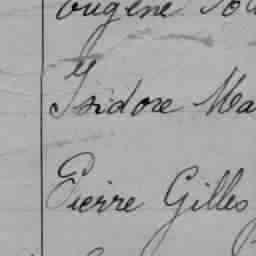 Eugène
Isidore Ma
Pierre Gilles